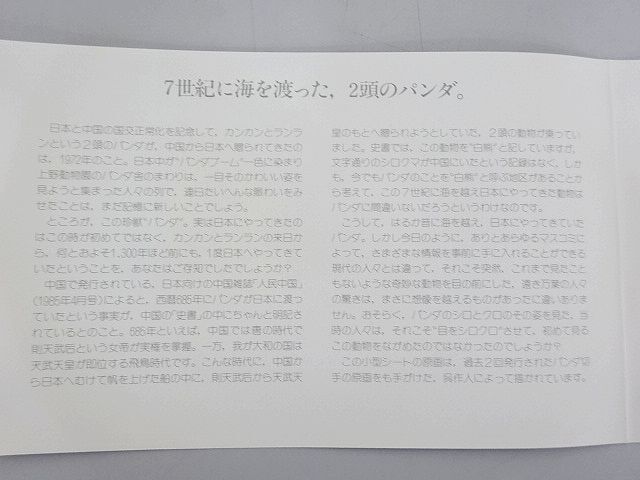 7世紀に海を渡った，2頭のパンダ。
日本と中国の国交正常化を記念して，カンカンとランラ
ンという２頭のパンダが，中国から日本へ贈られてきたの
は，1972年のこと。日本中が“パンダブーム”一色に染まり
上野動物園のパンダ舎のまわりは，一目そのかわいい姿を
見ようと集まった人々の列で，連日たいへんな賑わいをみ
せたことは，まだ記憶に新しいことでしょう。
ところが，この珍獣“パンダ”。実は日本にやってきたの
はこの時が初めてではなく，カンカンとランランの来日か
ら，何とおよそ1,300年ほど前にも，１度日本へやってきて
いたということを，あなたはご存知でしたでしょうか？
中国で発行されている，日本向けの中国雑誌「人民中国」
（1985年4月号）によると，西暦685年にパンダが日本に渡っ
ていたという事実が，中国の「史書」の中にちゃんと明記され
ているとのこと。685年といえば，中国では唐の時代で
則天武后という女帝が実権を掌握。一方，我が大和の国は
天武天皇が即位する飛鳥時代です。こんな時代に，中国か
ら日本へむけて帆を上げた船の中に，則天武后から天武天
皇のもとへ贈られようとしていた，２頭の動物が乗ってい
ました。史書では，この動物を“白熊”と記していますが，
文字通りのシロクマが中国にいたという記録はなく，しか
も，今でもパンダのことを“白熊”と呼ぶ地区があることか
ら考えて，この７世紀に海を越え日本にやってきた動物は
パンダに間違いないだろうというわけなのです。
こうして，はるか昔に海を越え，日本にやってきていた
パンダ。しかし今日のように，ありとあらゆるマスコミに
よって，さまざまな情報を事前に手に入れることができる
現代の人々とは違って，それこそ突然，これまで見たこと
もないような奇妙な動物を目の前にした，遠き万葉の人々
の驚きは，まさに想像を越えるものがあったに違いありま
せん。おそらく，パンダのシロとクロのその姿を見た，当
時の人々は，それこそ“目をシロクロ”させて，初めて見る
この動物をながめたのではなかったのでしょうか？
この小型シートの原画は，過去２回発行されたパンダ切
手の原画をも手がけた，呉作人によって描かれています。